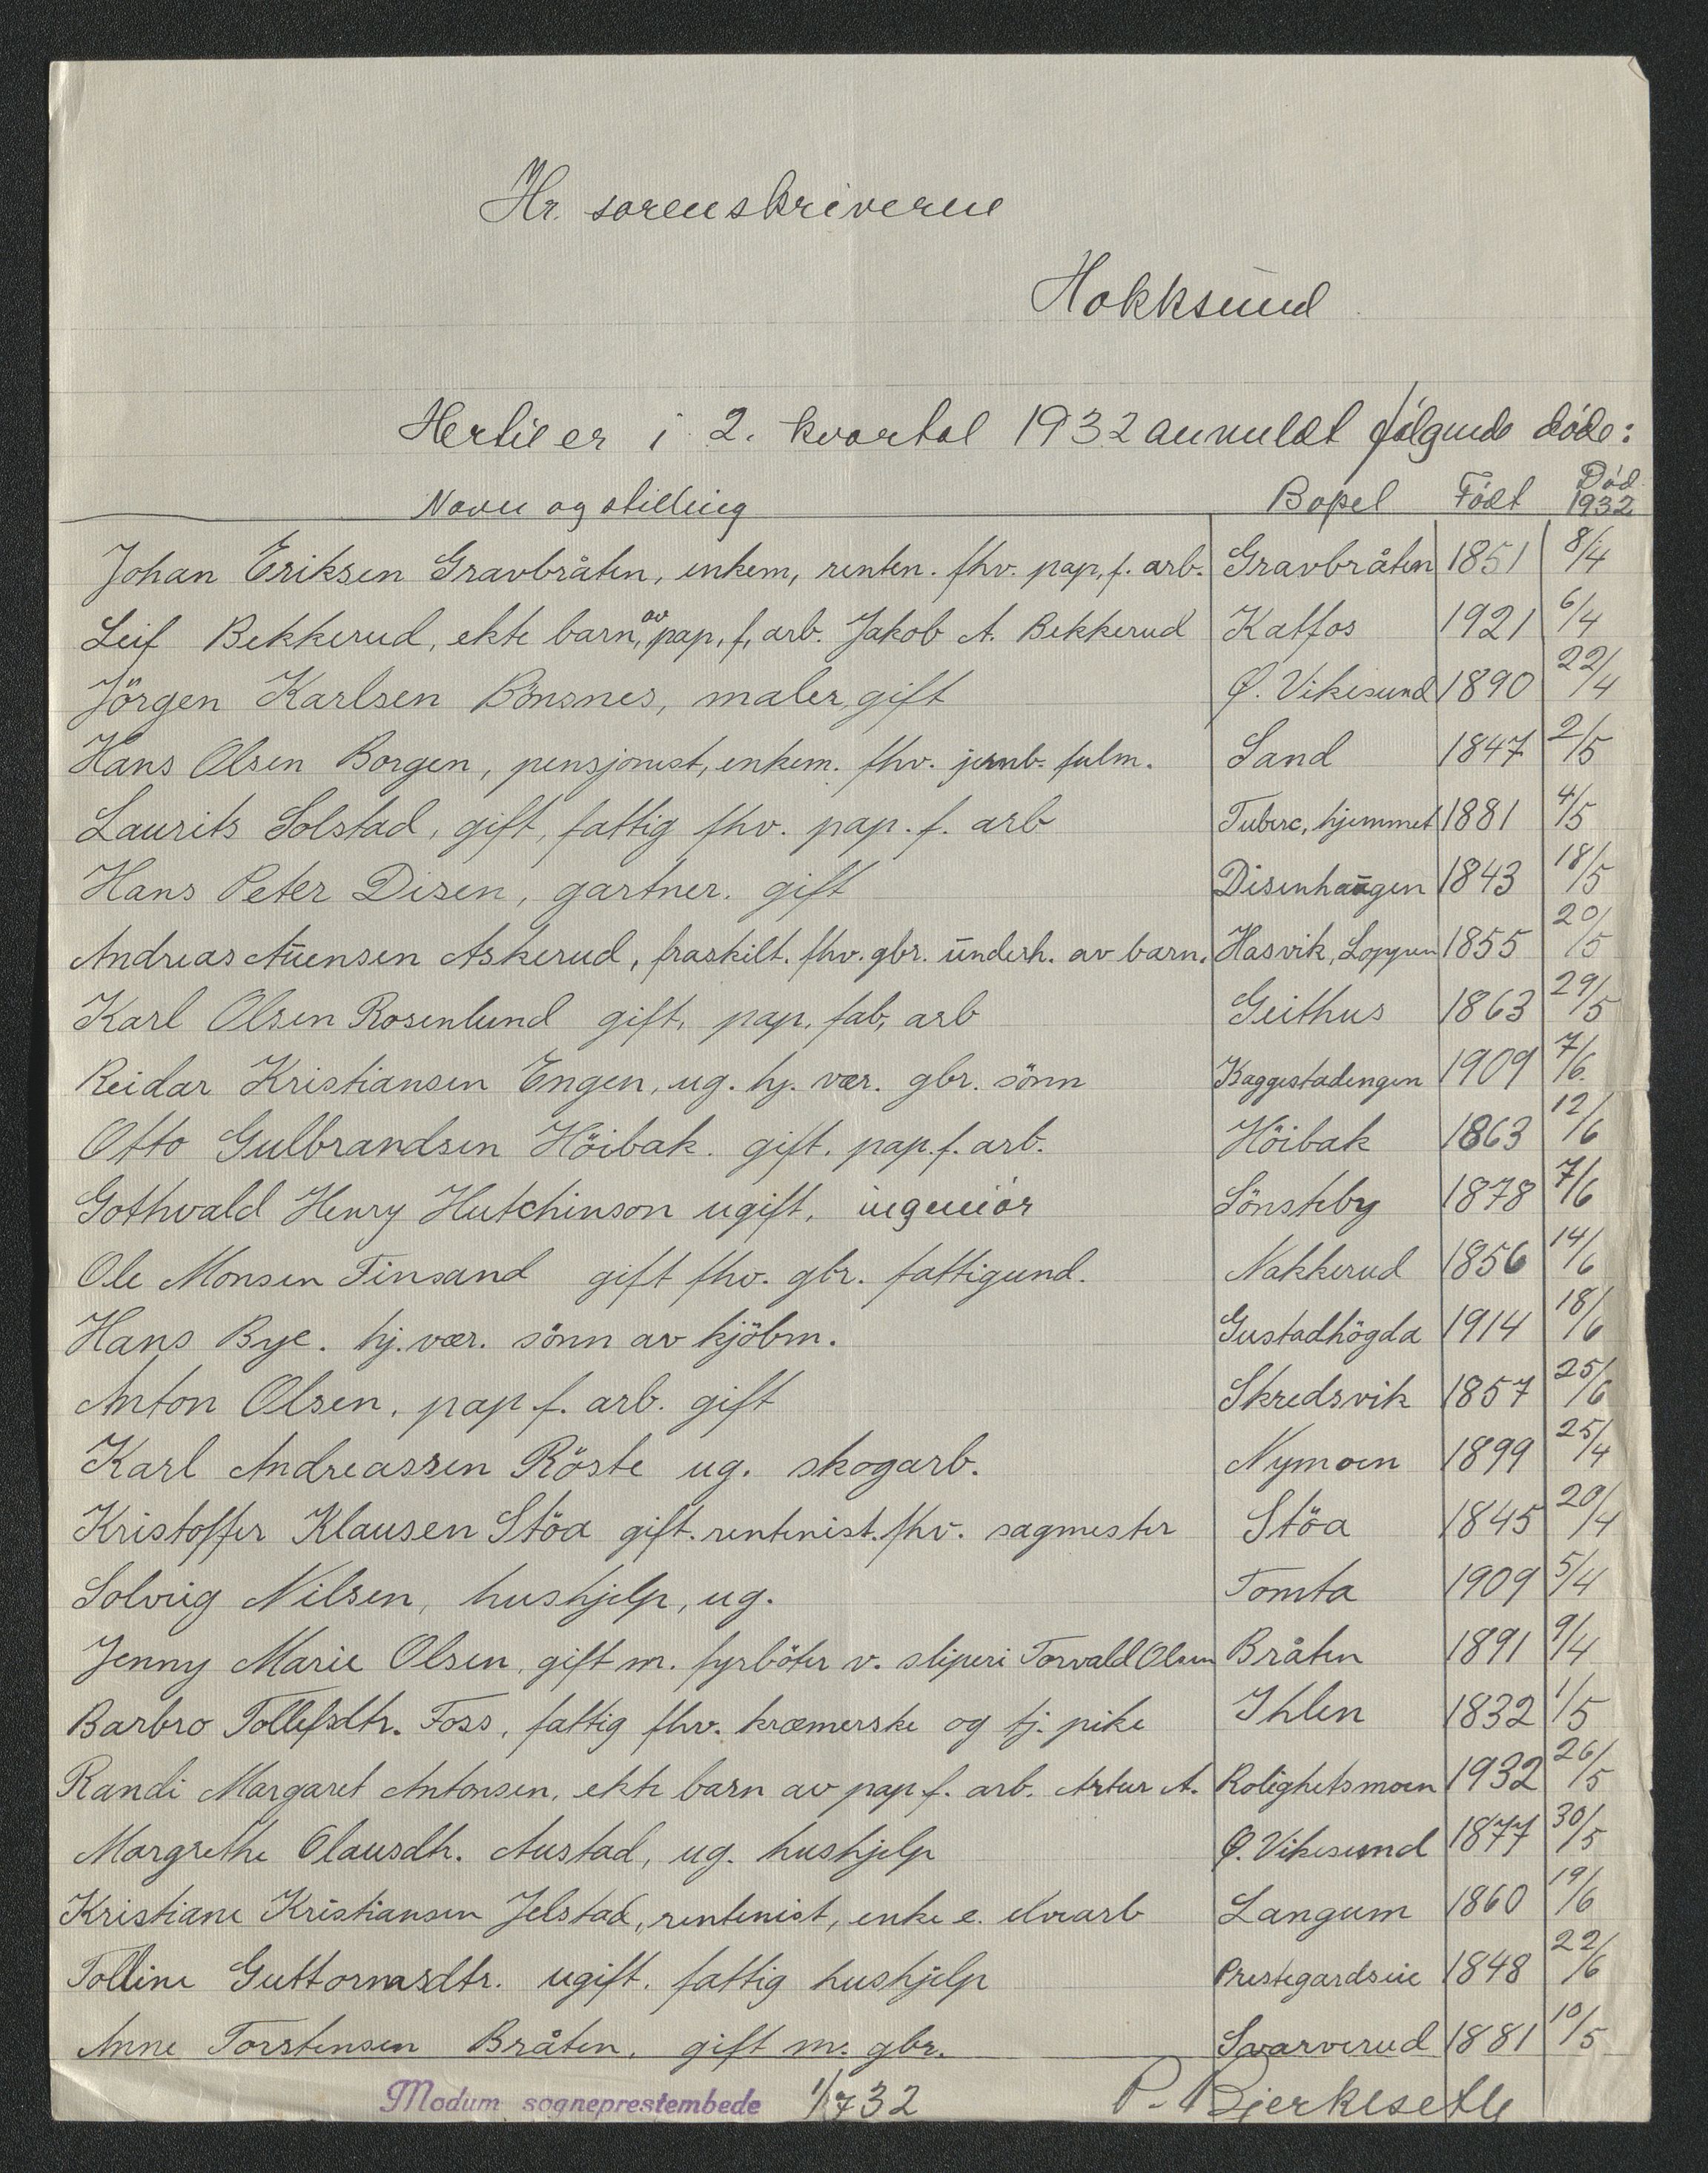 Hr. sorenskriveren
Hokksund
Hertil er i 2. kvartal 1932 anmeldt følgende døde:
Navn og stilling Bopel Født Død 1932
Johan Eriksen Gravbråten, enkem, renten. fhv. pap. f. arb. Gravbråten 1851 8/4
Leif Bekkerud, ekte barn av pap. f. arb. Jakob A. Bekkerud Katfos 1921 6/4
Jörgen Karlsen Bönsnes, maler, gift Ø. Vikesund 1890 22/4
Hans Olsen Borgen, pensjonist, enkem. fhv. jernb. fulm. Sand 1847 2/5
Laurits Solstad, gift, fattig fhv. pap. f. arb Tuberc, hjemmet 1881 4/5
Hans Peter Disen, gartner. gift Disenhaugen 1843 18/5
Andreas Auensen Askerud, fraskilt. fhv. gbr. underh. av barn. Hasvik, Loppen 1855 20/5
Karl Olsen Rosenlund gift, pap. fab, arb Geithus 1863 29/5
Reidar Kristiansen Engen, ug. hj. vær. gbr. sönn Kaggestadengen 1909 7/6
Otto Gulbrandsen Höibak. gift. pap. f. arb. Höibak 1863 12/6
Gothvald Henry Hutchinson ugift, ingeniør Sönsteby 1878 7/6
Ole Monsen Finsand gift fhv. gbr. fattigund. Nakkerud 1856 14/6
Hans Bye. hj. vær. sönn av kjöbm. Gustadhögda 1914 18/6
Anton Olsen, pap f. arb. gift Skredsvik 1857 25/6
Karl Andreassen Röste ug. skogarb. Nymoen 1899 25/4
Kristoffer Klausen Stöa gift. rentenist. fhv. sagmester Stöa 1845 20/4
Solveig Nilsen, hushjelp, ug. Tomta 1909 5/4
Jenny Marie Olsen, gift m. fyrböter v. sliperi Torvald Olsen Bråten 1891 9/4
Barbro Tollefsdtr. Foss, fattig fhv. kræmerske og tj. pike Ihlen 1832 1/5
Randi Margaret Antonsen, ekte barn av pap f. arb. Artur A. Rolighetsmoen 1932 26/5
Margrethe Olausdtr. Austad, ug. hushjelp Ø. Vikesund 1877 30/5
Kristiane Kristiansen Jelstad, rentenist, enke e. elvearb Langum 1860 19/6
Tolline Guttormsdtr. ugift. fattig hushjelp Prestegardseie 1848 22/6
Anne Torstensen Bråten, gift m. gbr. Svarverud 1881 10/5
Modum sogneprestembede 1/7 32 P. Bjerkeseth